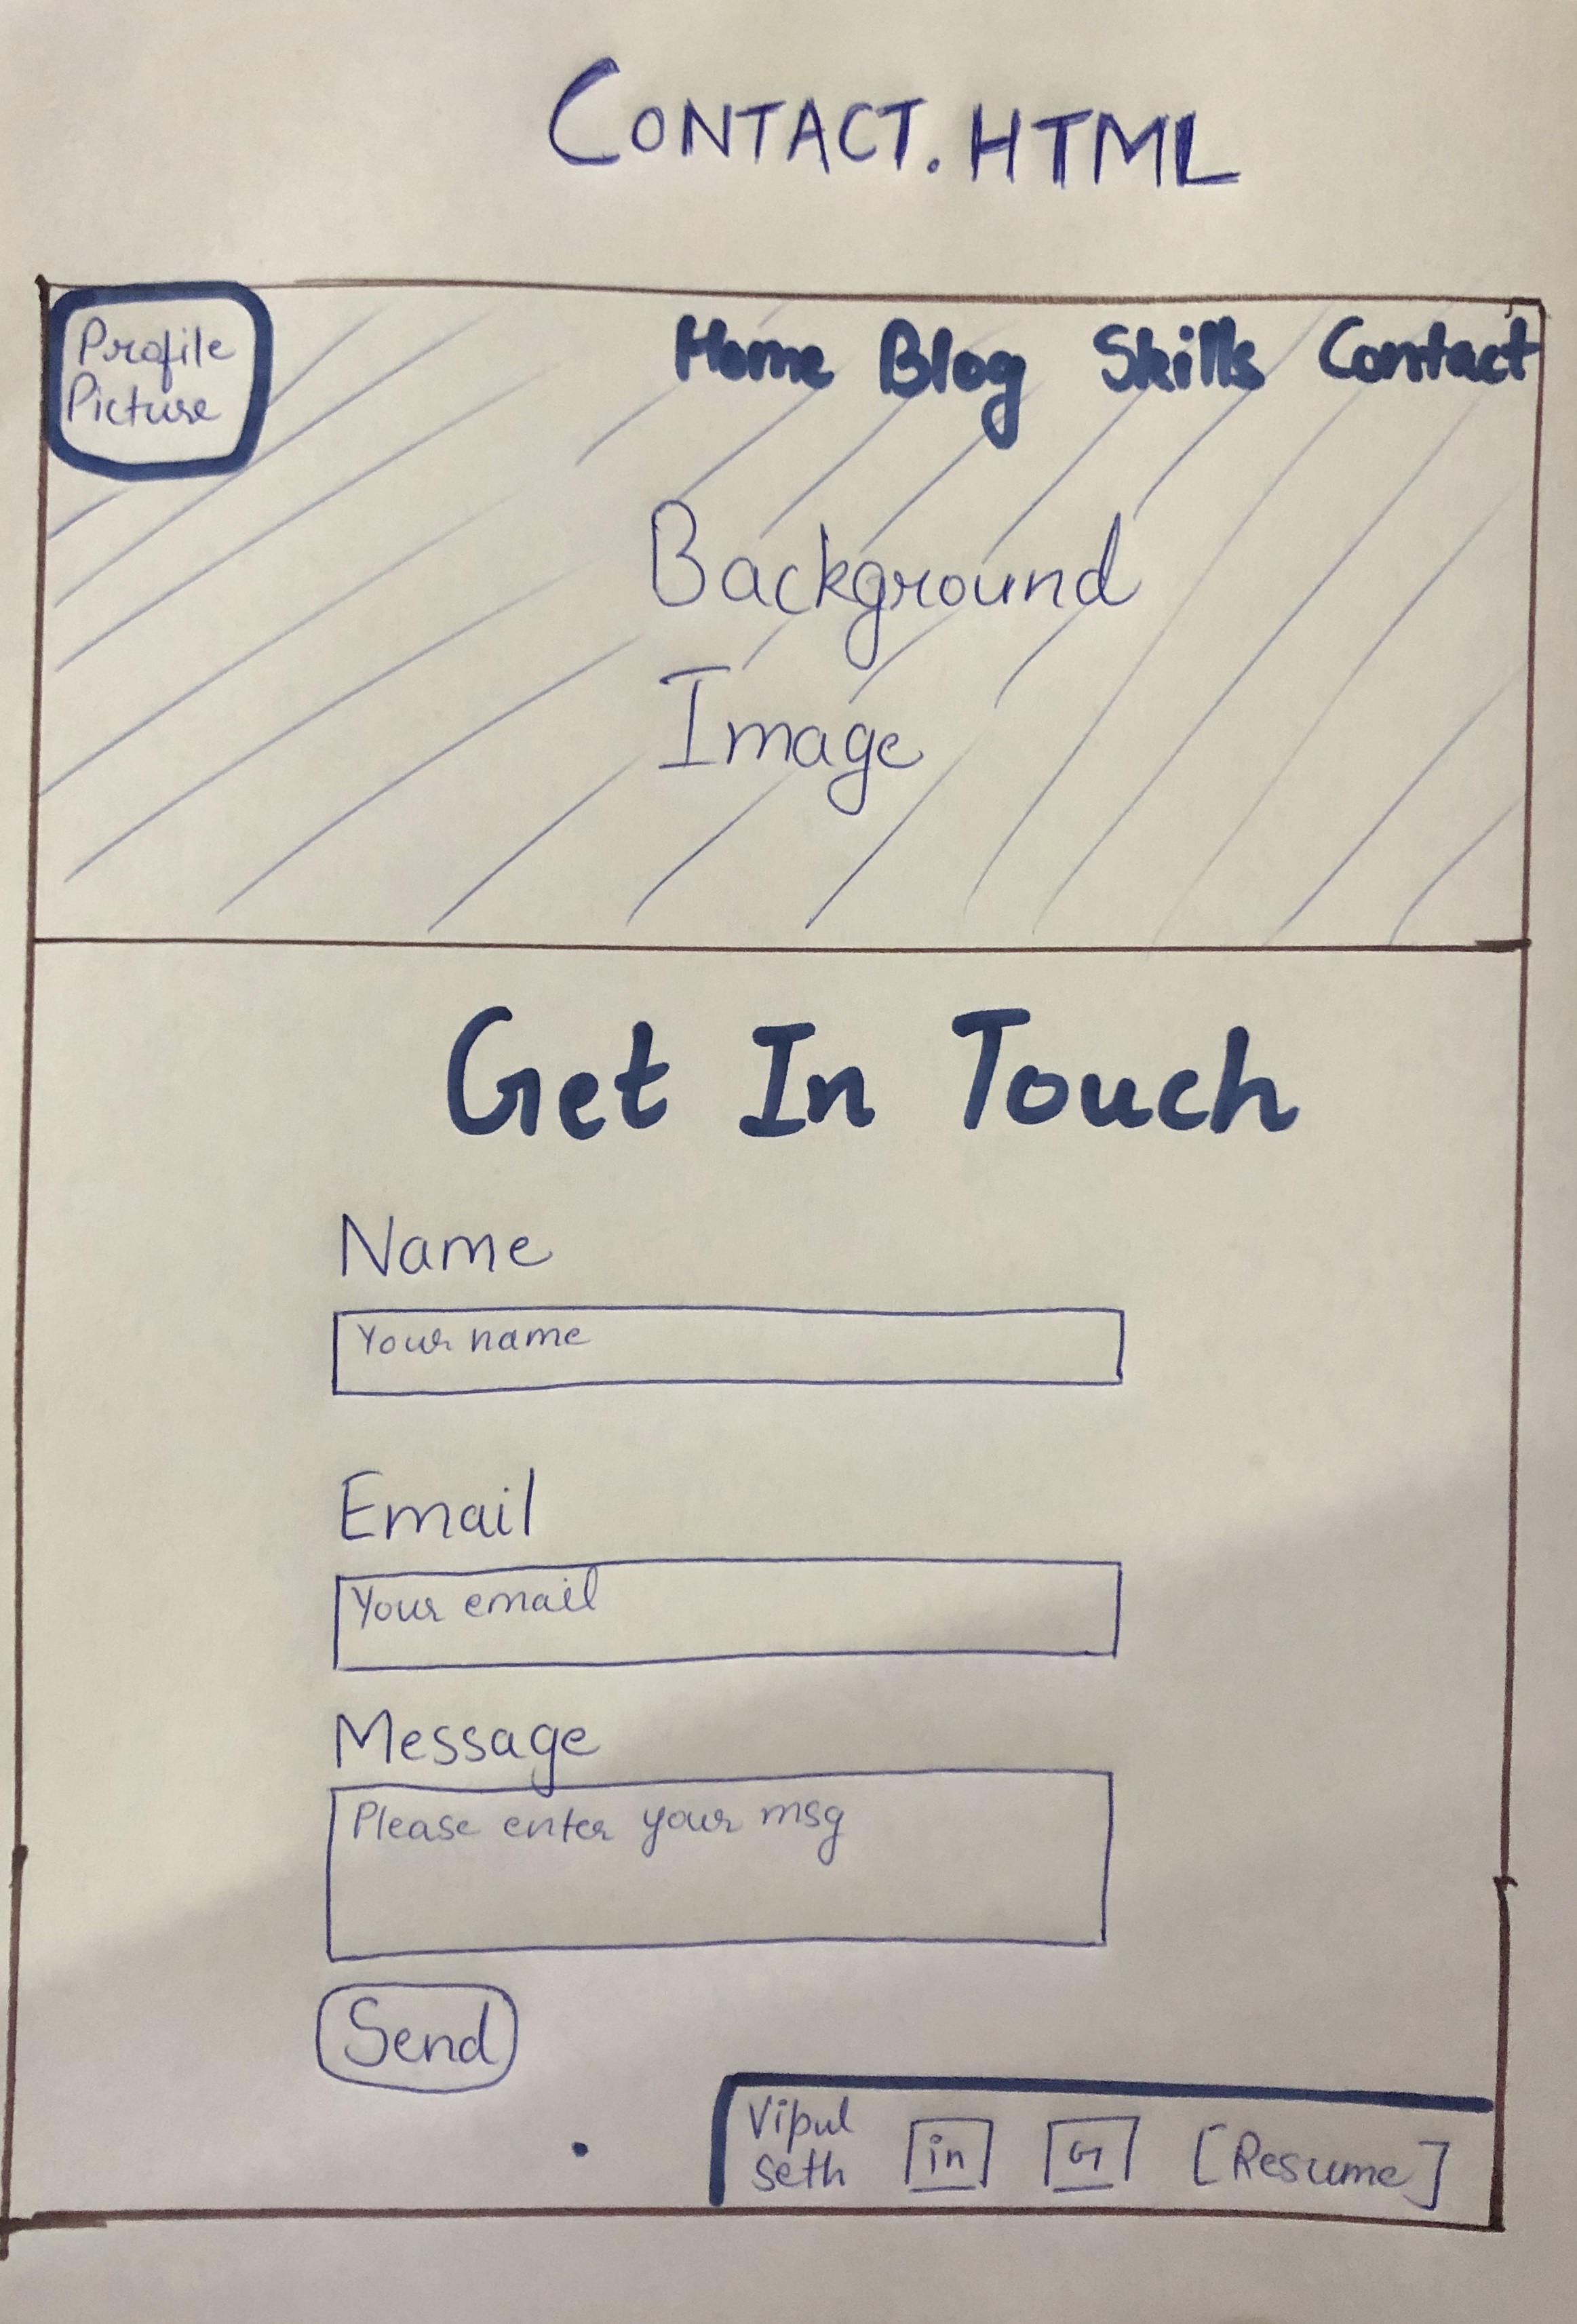 CONTACT.HTML
Profile
Picture
Home Blog Skills Contact
Background
Image
Get In Touch
Name
Your name
Email
Your email
Message
Please enter your msg
Send
Vipul
seth
in
G
[Resume]